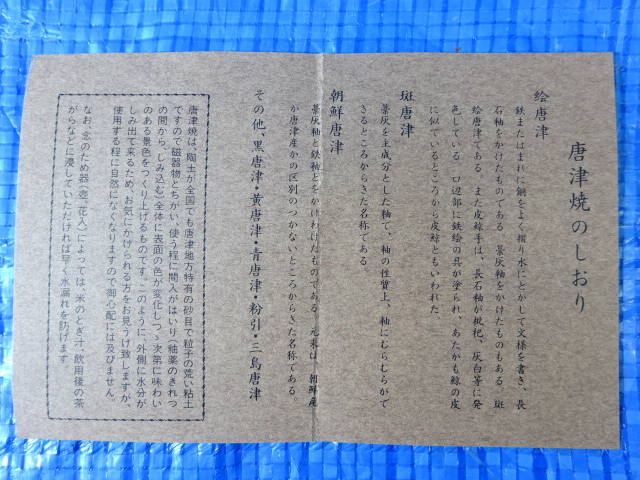 唐津焼のしおり
絵唐津
鉄またはまれに銅をよく摺り水にとかして文様を書き、長
石釉をかけたものである。藁灰釉をかけたものもある。斑
絵唐津である。また皮鯨手は、長石釉が枇杷、灰白等に発
色している。口辺部に鉄絵の具が塗られ、あたかも鯨の皮
に似ているところから皮鯨ともいわれた。
斑唐津
藁灰を主成分とした釉で、釉の性質上、釉にむらむらがで
きるところからきた名称である。
朝鮮唐津
藁灰釉と鉄釉とをかけわけたものである。元来は、朝鮮産
か唐津産かの区別のつかないところからきた名称である。
その他、黒唐津・黄唐津・青唐津・粉引・三島唐津
唐津焼は、陶土が全国でも唐津地方特有の砂目で粒子の荒い粘土
ですので磁器物とちがい、使う程に貫入がはいり(釉薬のきれつ
の間から、しみ込む)全体に表面の色が変化しつゝ次第に味わい
のある景色をつくり上げるものです。このように、外側に水分が
しみ出て来るため、お気にかけられる方をお見うけ致しますが、
使用する程に自然になくなりますので御心配には及びません。
なお、念のため器(壺、花入)によっては、米のとぎ汁、飲用後の茶
がらなどに浸していただければ早く水漏れを防げます。